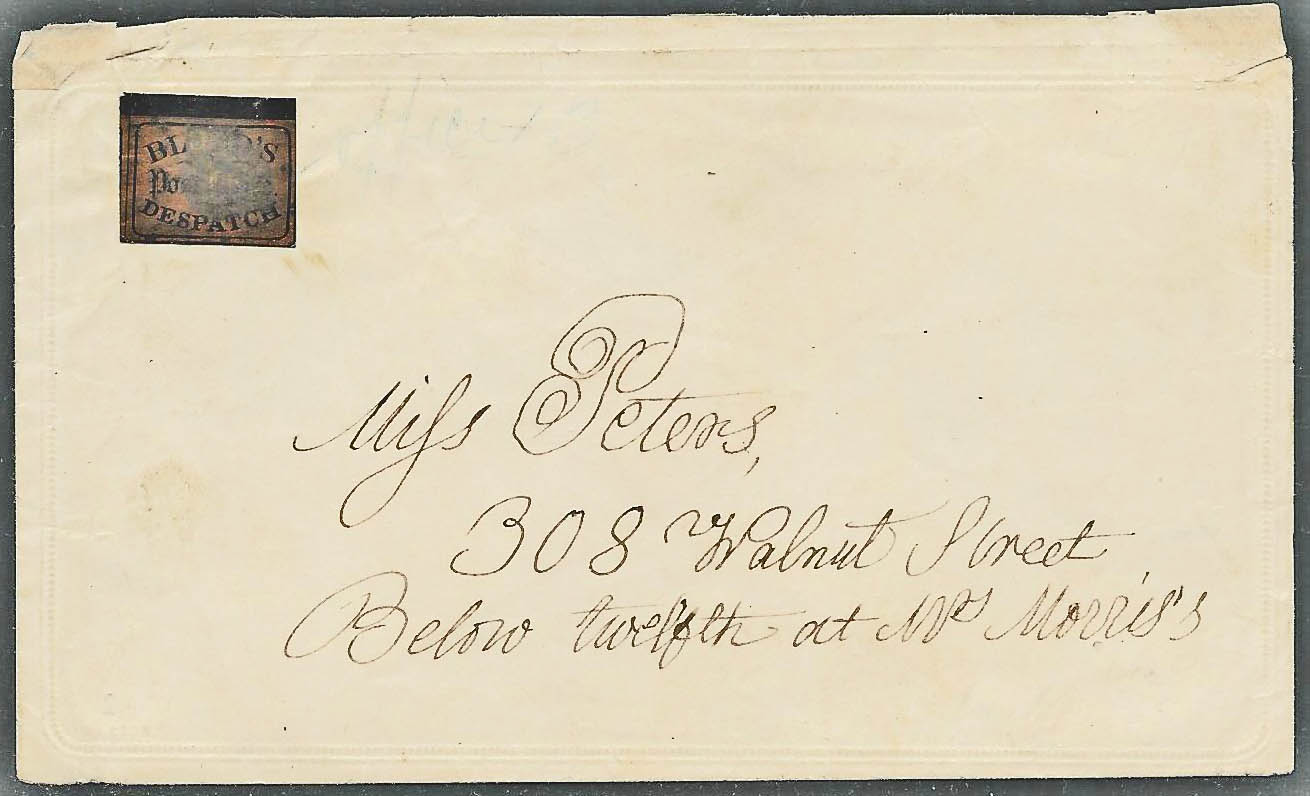 DESPATCH
Miss Peters,
308 Walnut Street
Below twelfth at Mrs Morris's